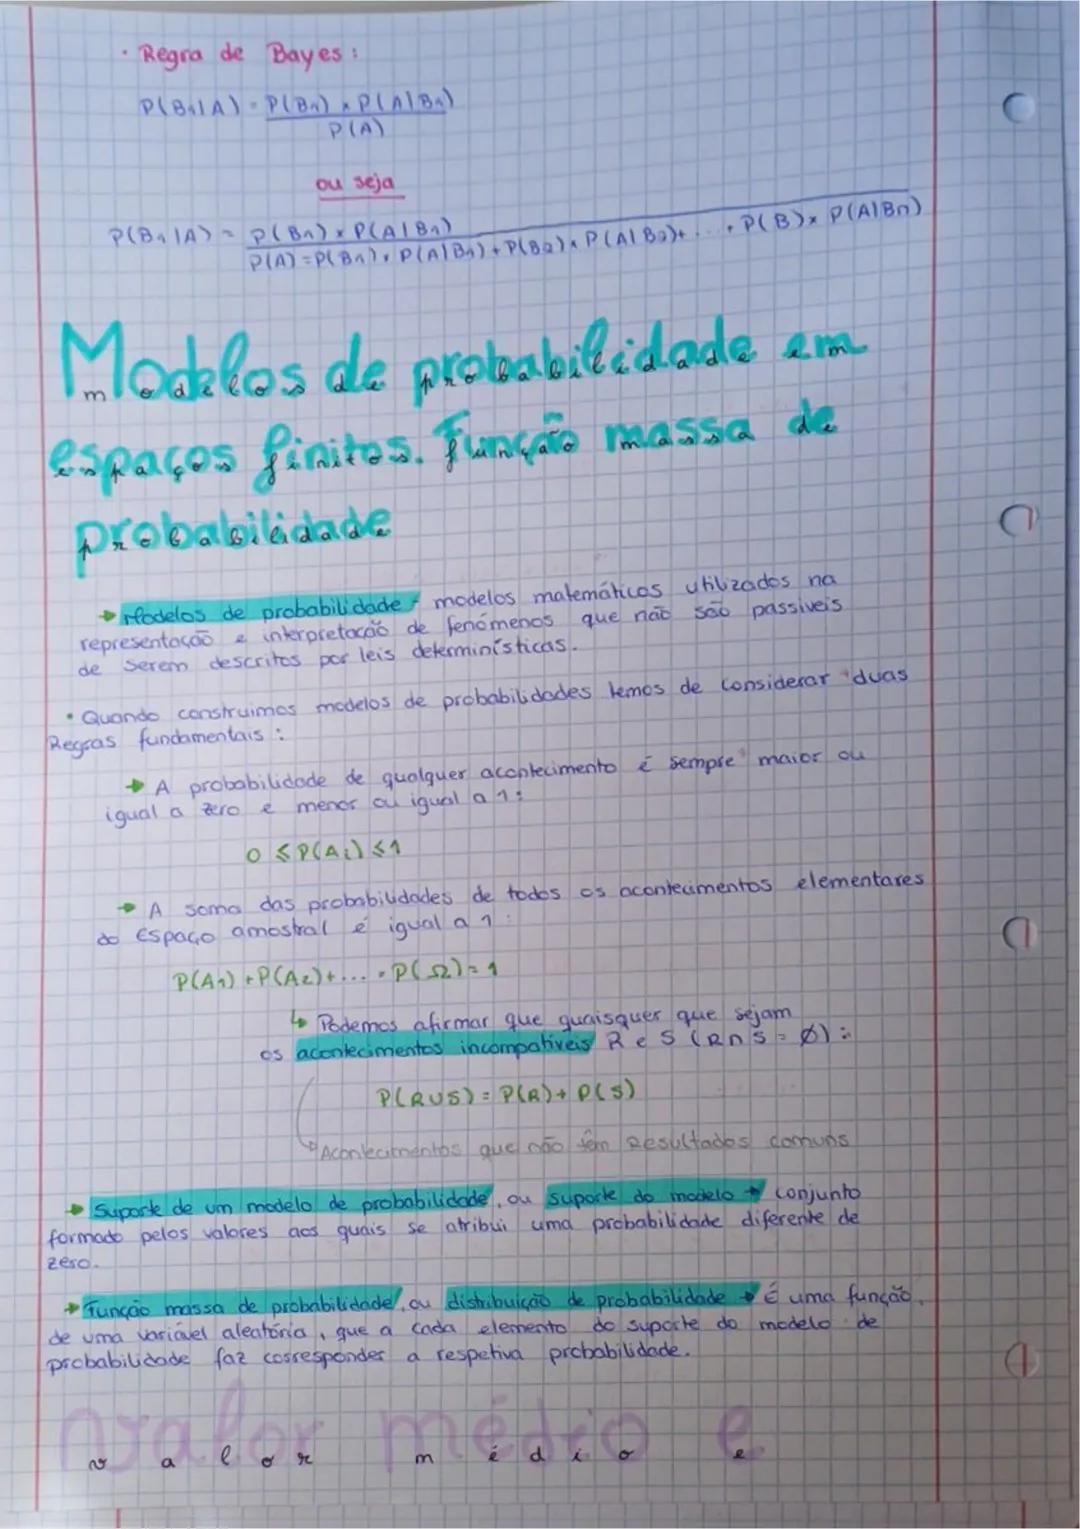 · Regra de Bayes :
P(B₁|A) = P(B₁) × P(A|B₁)
P(A)
ou seja
P(B₁|A) = P(B₁) × P(A|B₁)
P(A)=P(B₁) × P(A|B₁) + P(B₂) × P(A|B₂)+ ... + P(B) × P(A|Bn)
Modelos de probabilidade em
espaços finitos. Função massa de
probabilidade
→ Modelos de probabilidade - modelos matemáticos utilizados na
representação e interpretação de fenómenos que não são passíveis
de serem descritos por leis determinísticas.
• Quando construimos modelos de probabilidades temos de considerar duas
Regras fundamentais :
→ A probabilidade de qualquer acontecimento é sempre maior ou
igual a zero e menor ou igual a 1:
0 ≤ P(Ai) ≤ 1
→ A soma das probabilidades de todos os acontecimentos elementares
do Espaço amostral é igual a 1 :
P(A₁) + P(A₂) + .... + P(Ω) = 1
↳ Podemos afirmar que quaisquer que sejam
os acontecimentos incompatíveis R e S (R∩S = Ø) :
P(R∪S) = P(R) + P(S)
Acontecimentos que não têm Resultados comuns
→ Suporte de um modelo de probabilidade, ou suporte do modelo → conjunto
formado pelos valores aos quais se atribui uma probabilidade diferente de
zero.
→ Função massa de probabilidade, ou distribuição de probabilidade → É uma função,
de uma variável aleatória, que a cada elemento do suporte do modelo de
probabilidade faz corresponder a respetiva probabilidade.
valor médio e